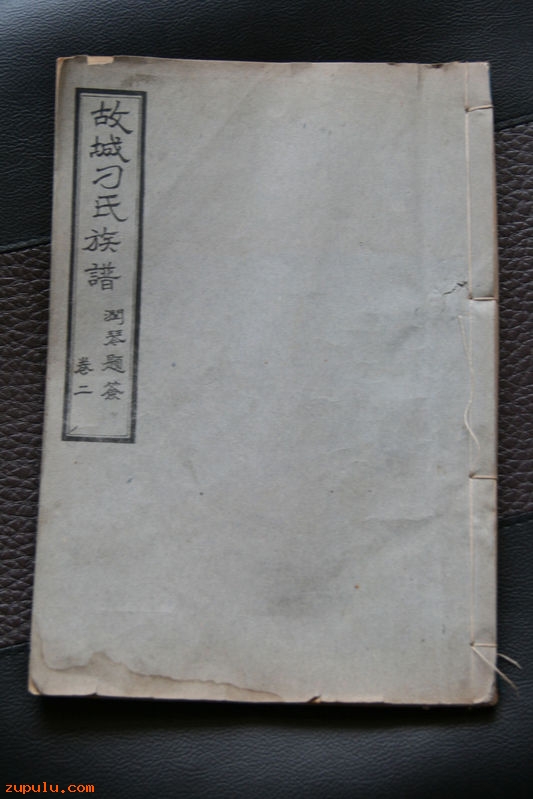 故城刁氏族譜
潤琴題簽
卷二
zupulu.com